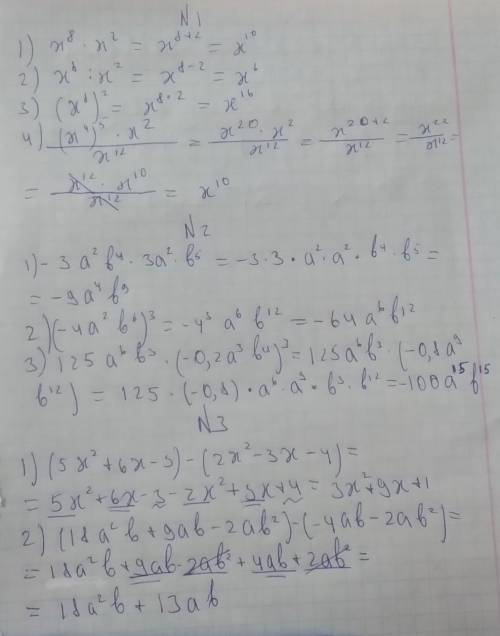 N1
1) x⁸ · x² = x⁸⁺² = x¹⁰
2) x⁸ : x² = x⁸⁻² = x⁶
3) (x⁸)² = x⁸·² = x¹⁶
4) (x⁴)⁵ · x² / x¹² = x²⁰ · x² / x¹² = x²⁰⁺² / x¹² = x²² / x¹² =
= x¹² · x¹⁰ / x¹² = x¹⁰
N2
1) -3a²b⁴ · 3a² · b⁵ = -3 · 3 · a² · a² · b⁴ · b⁵ =
= -9a⁴b⁹
2) (-4a²b⁴)³ = -4³ a⁶ b¹² = -64a⁶b¹²
3) 125a⁶b³ · (-0,2a³b⁴)³ = 125a⁶b³ · (-0,8a⁹
b¹²) = 125 · (-0,8) · a⁶ · a⁹ · b³ · b¹² = -100a¹⁵b¹⁵
N3
1) (5x² + 6x - 3) - (2x² - 3x - 4) =
= 5x² + 6x - 3 - 2x² + 3x + 4 = 3x² + 9x + 1
2) (18a²b + 9ab - 2ab²) - (-4ab - 2ab²) =
= 18a²b + 9ab - 2ab² + 4ab + 2ab² =
= 18a²b + 13ab